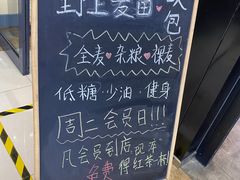 野上麦田
包
全麦❤杂粮❤裸麦
低糖 少油 健身
周二会员日!!!
凡会员到店 现卒
免费 得红茶一杯